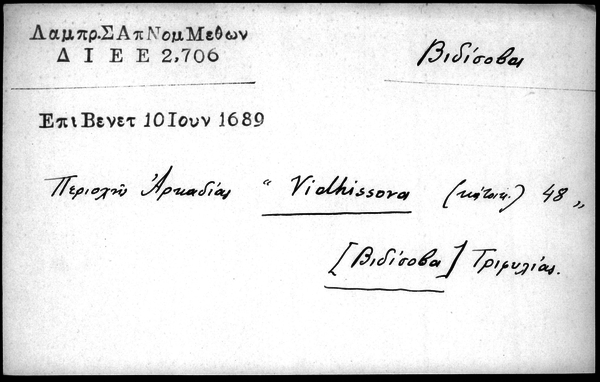 Λαμπρ.ΣΑπΝομΜεθων
Βιδίσοβα
ΔΙΕΕ 2,706
ΕπιΒενετ 10Ιουν 1689
Περιοχῆς Ἀρκαδίας " Vidhissova (κάτοικ.) 48 "
[Βιδίσοβα] Τριφυλίας.